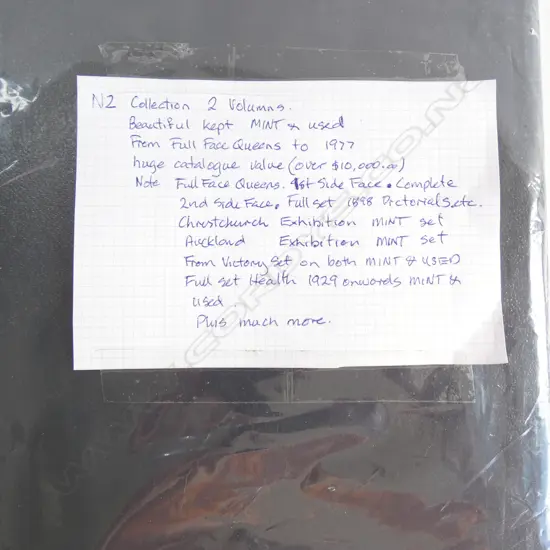 NZ Collection 2 Volumns.
Beautiful kept MINT & used
From Full Face Queens to 1977
huge catalogue value (over $10,000.00)
Note Full Face Queens. 1st Side Face. Complete
2nd Side Face. Full set 1898 Pictorial Setc.
Chrestchurch Exhibition MINT set
Auckland Exhibition MINT set
From Victory Set on both MINT & USED
Full set Health 1929 onwards MINT &
used
Plus much more.